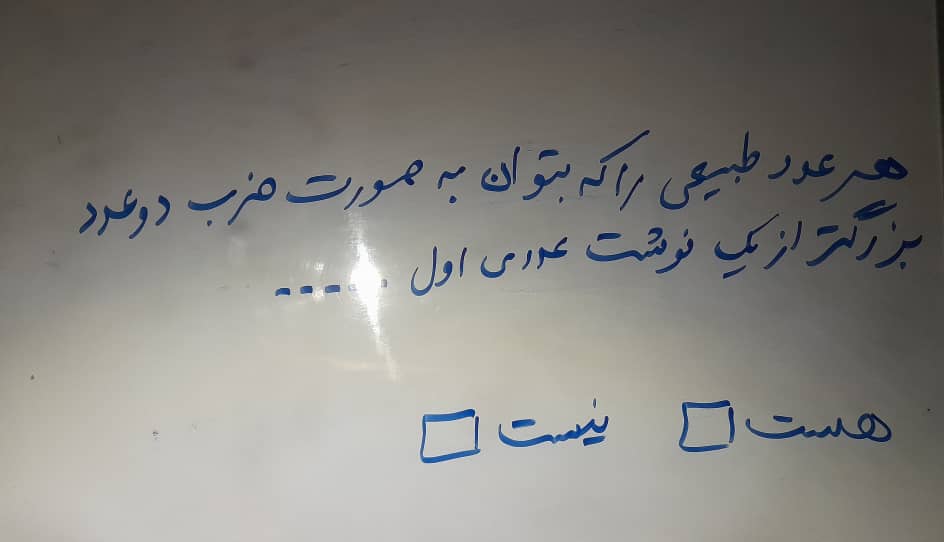 هر عدد طبیعی را که بتوان به صورت ضرب دو عدد
بزرگتر از یک نوشت عددی اول -----
هست □ نیست □